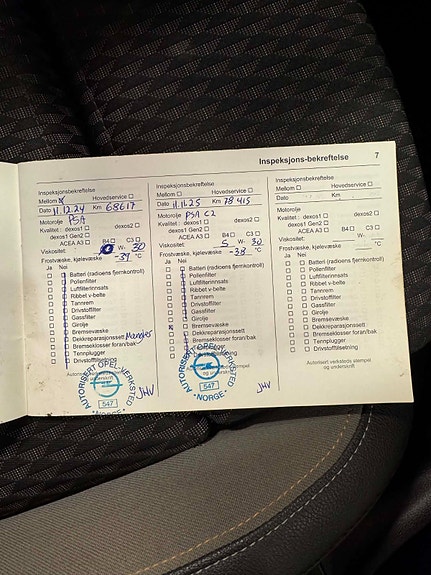 Inspeksjons-bekreftelse 7
Inspeksjonsbekreftelse
Mellom Hovedservice
Dato 11.12.24 Km 68617
Motorolje PSA
Kvalitet : dexos1 dexos2
dexos1 Gen2
ACEA A3 B4 C3
Viskositet: W- 30
Frostvæske, kjølevæske -39 °C
Ja Nei
Batteri (radioens fjernkontroll)
Pollenfilter
Luftfilterinnsats
Ribbet v-belte
Tannrem
Drivstoffilter
Gassfilter
Girolje
Bremsevæske
Dekkreparasjonssett Mangler
Bremseklosser foran/bak
Tennplugger
Drivstofftilsetning
AUTORISERT OPEL VERKSTED
547
NORGE
JHV
Inspeksjonsbekreftelse
Mellom Hovedservice
Dato 11.11.25 Km 78 415
Motorolje PSA C2
Kvalitet : dexos1 dexos2
dexos1 Gen2
ACEA A3 B4 C3
Viskositet: 5 W- 30
Frostvæske, kjølevæske -38 °C
Ja Nei
Batteri (radioens fjernkontroll)
Pollenfilter
Luftfilterinnsats
Ribbet v-belte
Tannrem
Drivstoffilter
Gassfilter
Girolje
Bremsevæske
Dekkreparasjonssett
Bremseklosser foran/bak
Tennplugger
Drivstofftilsetning
AUTORISERT OPEL VERKSTED
og underskrift
547
NORGE
JHV
Inspeksjonsbekreftelse
Mellom Hovedservice
Dato Km
Motorolje
Kvalitet : dexos1 dexos2
dexos1 Gen2
ACEA A3 B4 C3
Viskositet: W-
Frostvæske, kjølevæske °C
Ja Nei
Batteri (radioens fjernkontroll)
Pollenfilter
Luftfilterinnsats
Ribbet v-belte
Tannrem
Drivstoffilter
Gassfilter
Girolje
Bremsevæske
Dekkreparasjonssett
Bremseklosser foran/bak
Tennplugger
Drivstofftilsetning
Autorisert verksteds stempel
og underskrift